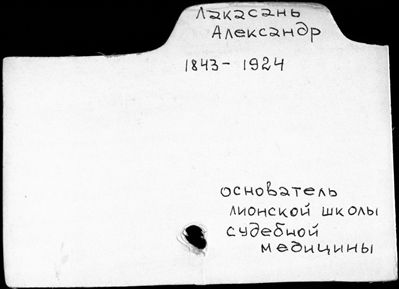 Лакасань
Александр
1843 - 1924
основатель
лионской школы
судебной
медицины